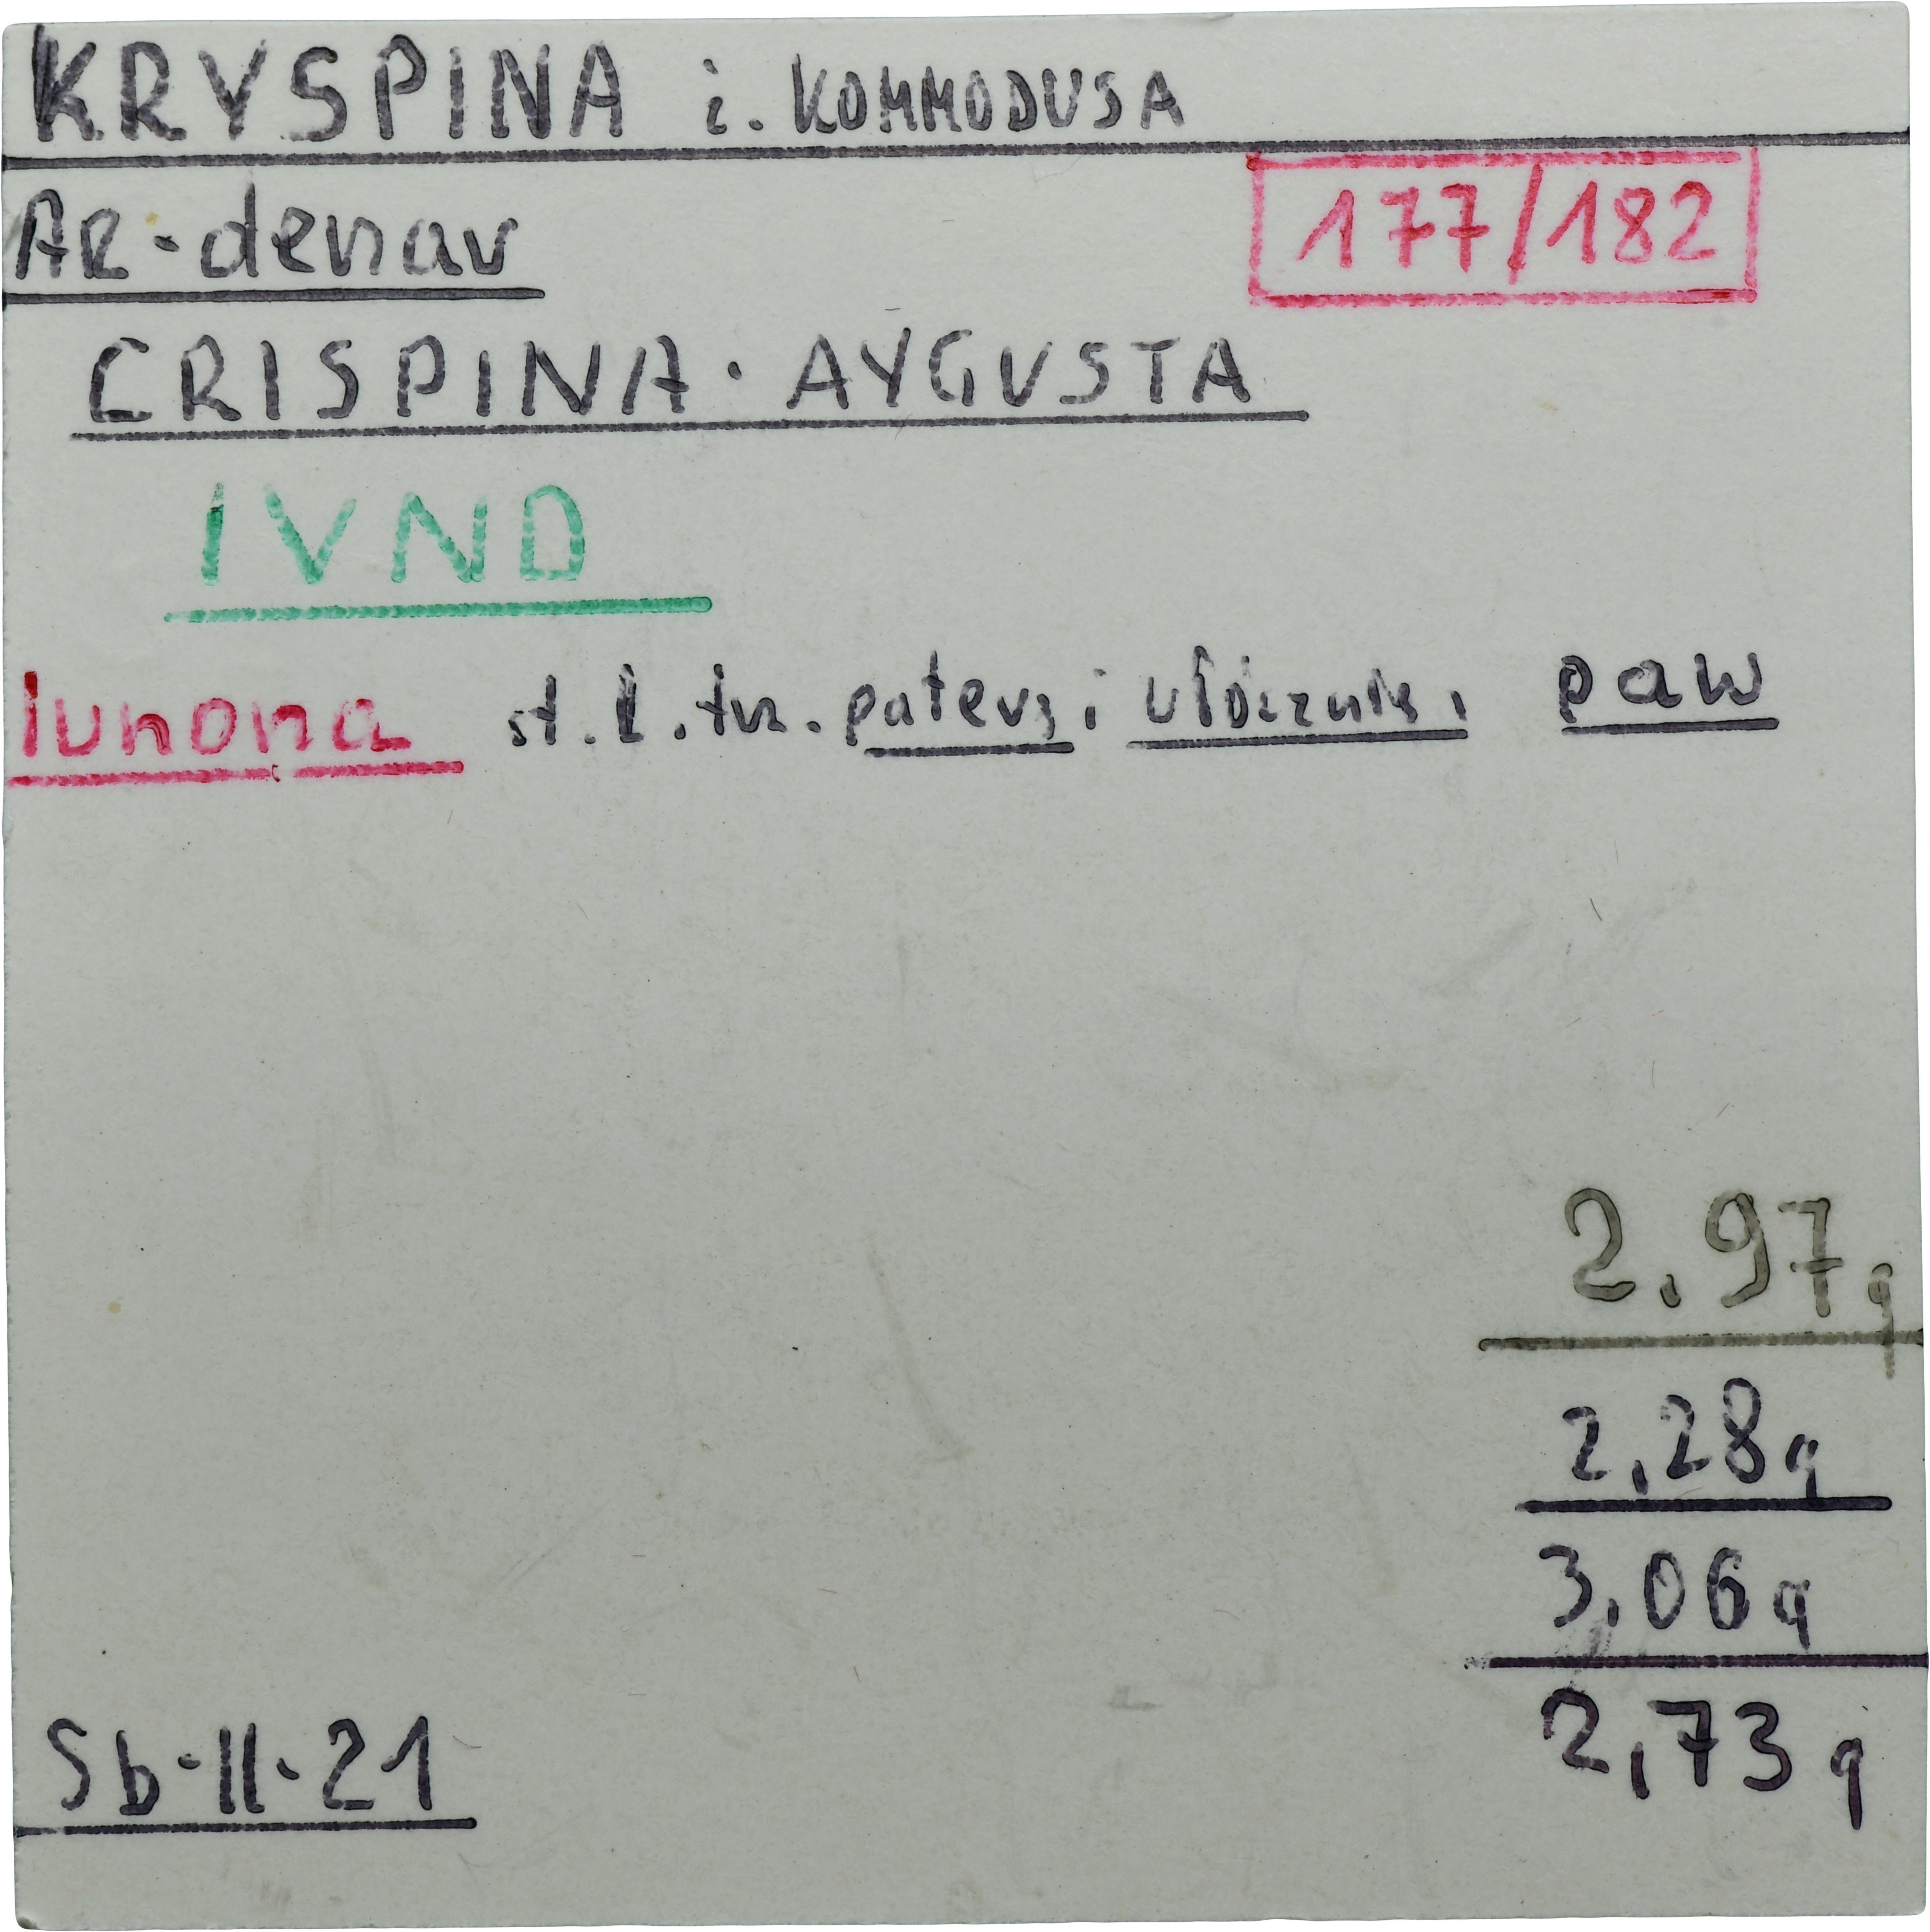 KRYSPINA ż. KOMMODUSA
AR-denar
177/182
CRISPINA · AVGVSTA
IVNO
Iunona st. l. trz. paterę i włócznię, paw
2,97g
2,28g
3,06g
Sb·II·21
2,73g